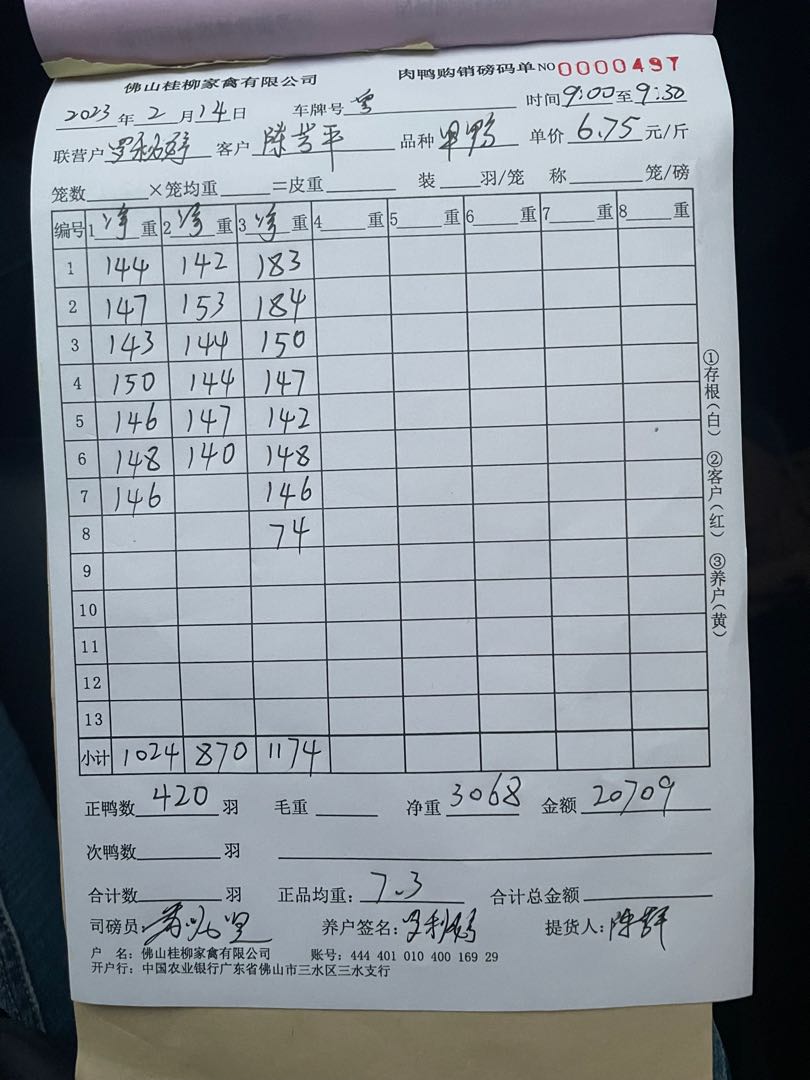 佛山桂柳家禽有限公司 肉鸭购销磅码单 NO 0000497
2023年2月14日 车牌号 粤 时间9:00至9:30
联营户 客户 陈 平 品种 单价 6.75 元/斤
笼数 ×笼均重 =皮重 装 羽/笼 称 笼/磅
编号 1 净 重 2 净 重 3 净 重 4 重 5 重 6 重 7 重 8 重
1 144 142 183
2 147 153 184
3 143 144 150
4 150 144 147
5 146 147 142
6 148 140 148
7 146 146
8 74
9
10
11
12
13
小计 1024 870 1174
正鸭数 420 羽 毛重 净重 3068 金额 20709
次鸭数 羽
合计数 羽 正品均重: 7.3 合计总金额
司磅员: 养户签名: 提货人: 陈
户 名: 佛山桂柳家禽有限公司 账号: 444 401 010 400 169 29
开户行: 中国农业银行广东省佛山市三水区三水支行
①存根(白) ②客户(红) ③养户(黄)